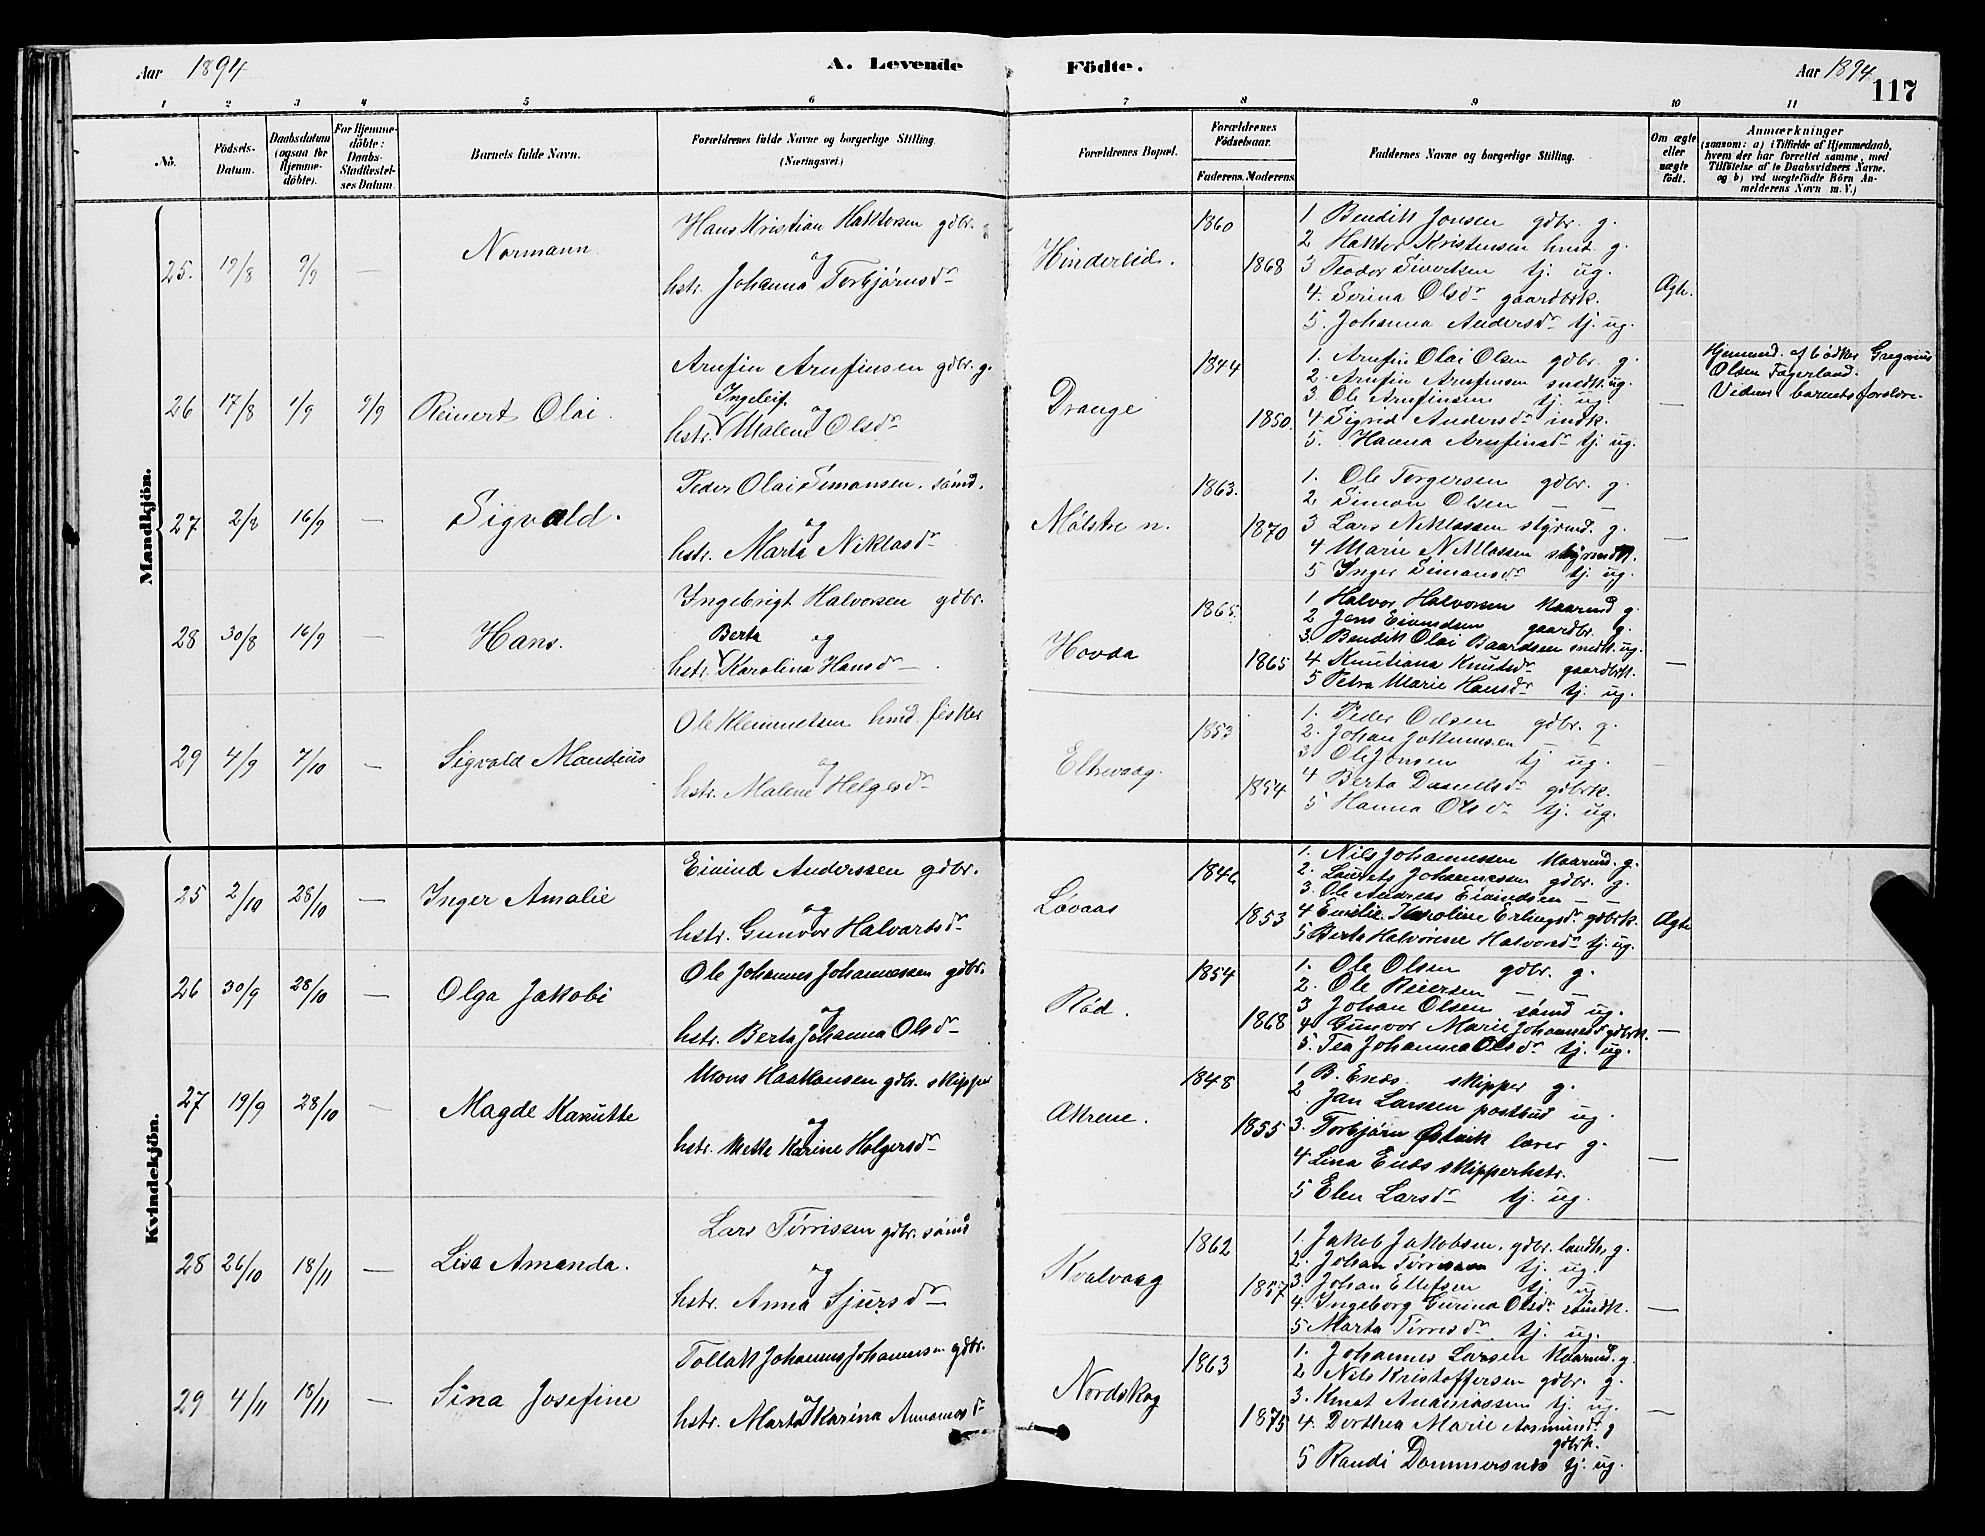 Aar 1894
A. Levende Födte.
Aar 1894
117
1 2 3 4 5 6 7 8 9 10 11
No.
Födsels-Datum.
Daabsdatum (ogsaa for Hjemme-döbte).
For Hjemme-döbte: Daabs-Stadfæstel-ses Datum.
Barnets fulde Navn.
Forældrenes fulde Navne og borgerlige Stilling. (Næringsvei)
Forældrenes Bopæl.
Forældrenes Födselsaar.
Faderens. Moderens.
Faddernes Navne og borgerlige Stilling.
Om ægte eller uægte födt.
Anmærkninger
(saasom: a) i Tilfælde af Hjemmedaab,
hvem der har forrettet samme, med
Tilföielse af to Daabsvidners Navne.
og b) ved uægtefödte Börn An-
melderens Navn m. V.)
Mandkjön.
25. 19/8 9/9 — Normann
Hans Kristian Haktorsen gdbr. g
og
hstr. Johanna Torbjørnsdr
Hinderlid. 1860 1868
1 Bendik Jonsen gdbr. g.
2 Haktor Kristensen g.
3 Teodor Sivertsen tj. ug.
4. Serina Olsdr gaardbrk.
5. Johanna Andersdr tj. ug.
Ægte.
26 17/8 1/9 9/9 Reinert Olai.
Arnfin Arnfinsen gdbr. g.
Ingeleif
og
hstr. Malene Olsdr
Drange 1844 1850.
1. Arnfin Olai Olsen gdbr. g.
2. Arnfin Arnfinsen smedk. ug.
3. Ole Arnfinsen tj. ug
4 Sigrid Andersdr indk.
5. Hanna Arnfinsdr tj. ug.
—
Hjemmed. af bødker Gregorius
Olsen Fagerland.
Vidner barnets forældre.
27 2/8 16/9 — Sigvald.
Peder Olai Simonsen. sømd.
og
hstr. Marta Niklasdr
Mølstre n. 1863. 1870
1. Ole Torgersen gdbr. g.
2. Simon Olsen — —
3 Lars Niklassen styrmd. g.
4 Marie Niklassen styrmdk.
5 Inger Simonsdr tj. ug.
—
28 30/8 16/9 — Hans.
Ingebrigt Halvorsen gdbr.
Berta
og
hstr. Karolina Hansdr
Hovda 1865. 1865
1 Halvor Halvorsen kaarmd g.
2 Jens Eivindsen gaardbr. g.
3. Bendik Olai Baardsen smedk. ug.
4 Knutiana Knutsdr gaardbrk.
5 Petra Marie Hansdr tj. ug.
—
29 4/9 7/10 — Sigvald Mandius
Ole Klemmetsen hmd. fisker
og
hstr. Malene Helgesdr
Eltrevaag. 1853 1854
1. Peder Odsen gdbr. g.
2. Johan Jokumsen — —
3. Ole Jonsen tj ug.
4 Berta Danielsdr gdbrk.
5 Hanna Olsdr tj. ug.
—
Kvindekjön.
25 2/10 28/10 — Inger Amalie
Eivind Anderssen gdbr.
og
hstr. Gunvor Halvartsdr
Løvaas 1846 1853
1. Nils Johannessen kaarmd. g.
2. Laurits Johannessen gdbr. g.
3. Ole Andreas Eivindsen — —
4 Emilie Karoline Erlingsdr gdbrk.
5 Berta Halvorine Halvorsdr tj. ug.
Ægte
26 30/9 28/10 — Olga Jakobe
Ole Johannes Johannessen gdbr.
og
hstr. Berta Johanna Olsdr
Rød. 1854 1868
1. Ole Olsen gdbr. g.
2. Ole Reiersen — —
3 Johan Olsen sømd ug.
4 Gunvor Marie Johannesdr gdbrk.
5. Tea Johanna Olsdr tj. ug.
—
27 19/9 28/10 — Magde Kanutte
Mons Haakonsen gdbr. skipper
og
hstr. Mette Karine Holgersdr
Akrene. 1848 1855
1 B. Enæs skipper g.
2 Jan Larssen postbud ug.
3. Torbjørn Østvik lærer g.
4 Lina Enæs skipperhstr.
5 Elen Larsdr tj. ug.
—
28 26/10 18/11 — Lisa Amanda.
Lars Tørrissen gdbr. sømd
og
hstr. Anna Sjursdr
Kvalvaag 1862 1857
1. Jakob Jakobsen. gdbr. landh. g.
2. Johan Tørrissen tj. ug.
3. Johan Ellefsen tj. ug
4. Ingeborg Gurina Olsdr sømdk.
5 Marta Tørresdr. tj. ug.
—
29 4/11 18/11 — Sina Josefine
Tollak Johannes Johannessen gdbr.
og
hstr. Marta Karina
Nordskog 1863 1875
1. Johannes Larsen kaarmd. g.
2 Nils Kristoffersen gdbr. g.
3. Knut tj. ug.
4. Dorthea Marie Aasmundsdr g
gdbrk.
5 Randi Dommersnes tj. ug.
—